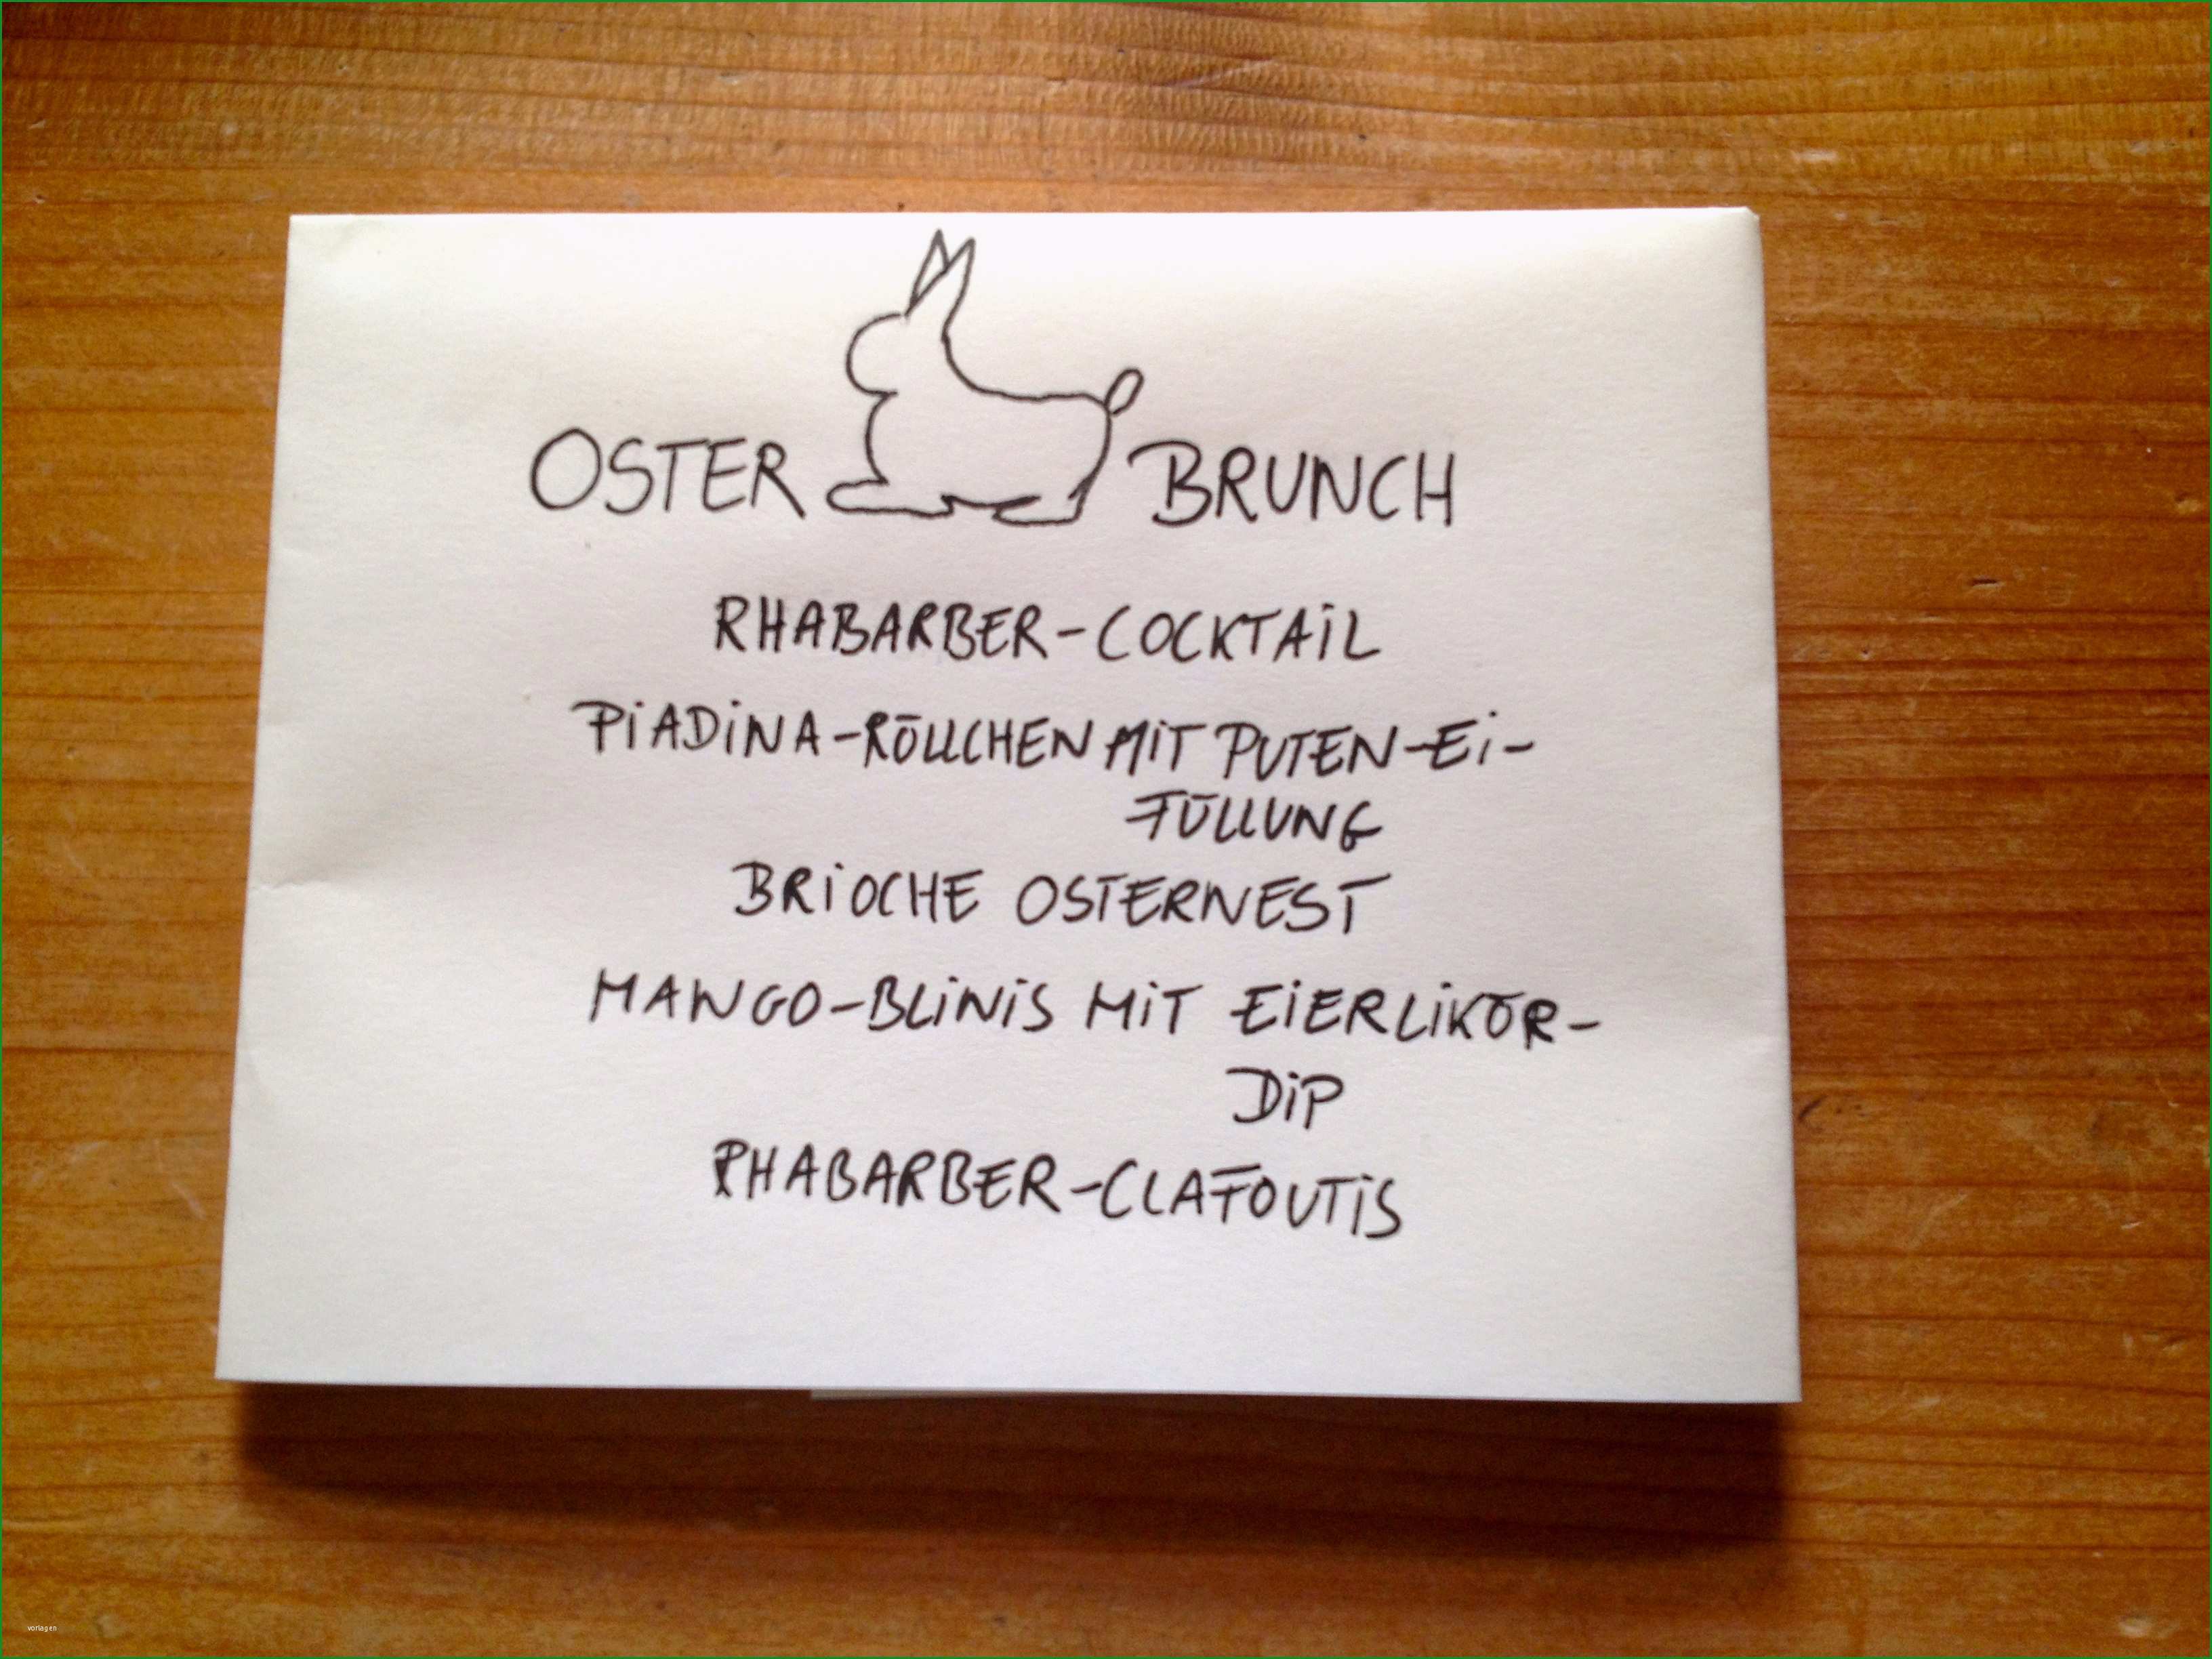 OSTER BRUNCH
RHABARBER-COCKTAiL
PiADiNA-RÖLLCHEN MiT PUTEN-Ei-
FÜLLUNG
BRiOCHE OSTERNEST
MANGO-BLiNiS MiT EiERLiKÖR-
DiP
RHABARBER-CLAFOUTiS
vorlagen